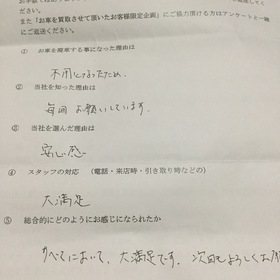 ださい。
また「お車を買取させて頂いたお客様限定企画」にご協力頂ける方はアンケートと一緒
にご返送ください。
① お車を廃車する事になった理由は
不用になったため。
② 当社を知った理由は
毎回お願いしています。
③ 当社を選んだ理由は
安心感
④ スタッフの対応 (電話・来店時・引き取り時などの)
大満足
⑤ 総合的にどのようにお感じになられたか
すべてにおいて、大満足です。次回もよろしくお